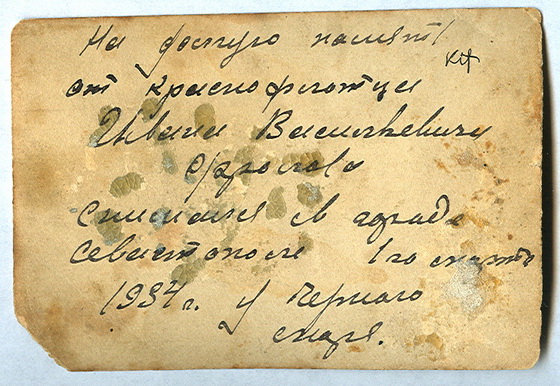 На долгую память
от краснофлотца
Ивана Васильевича
Фролова
снимался в городе
Севастополе 1го
1934 г. у Черного
моря.